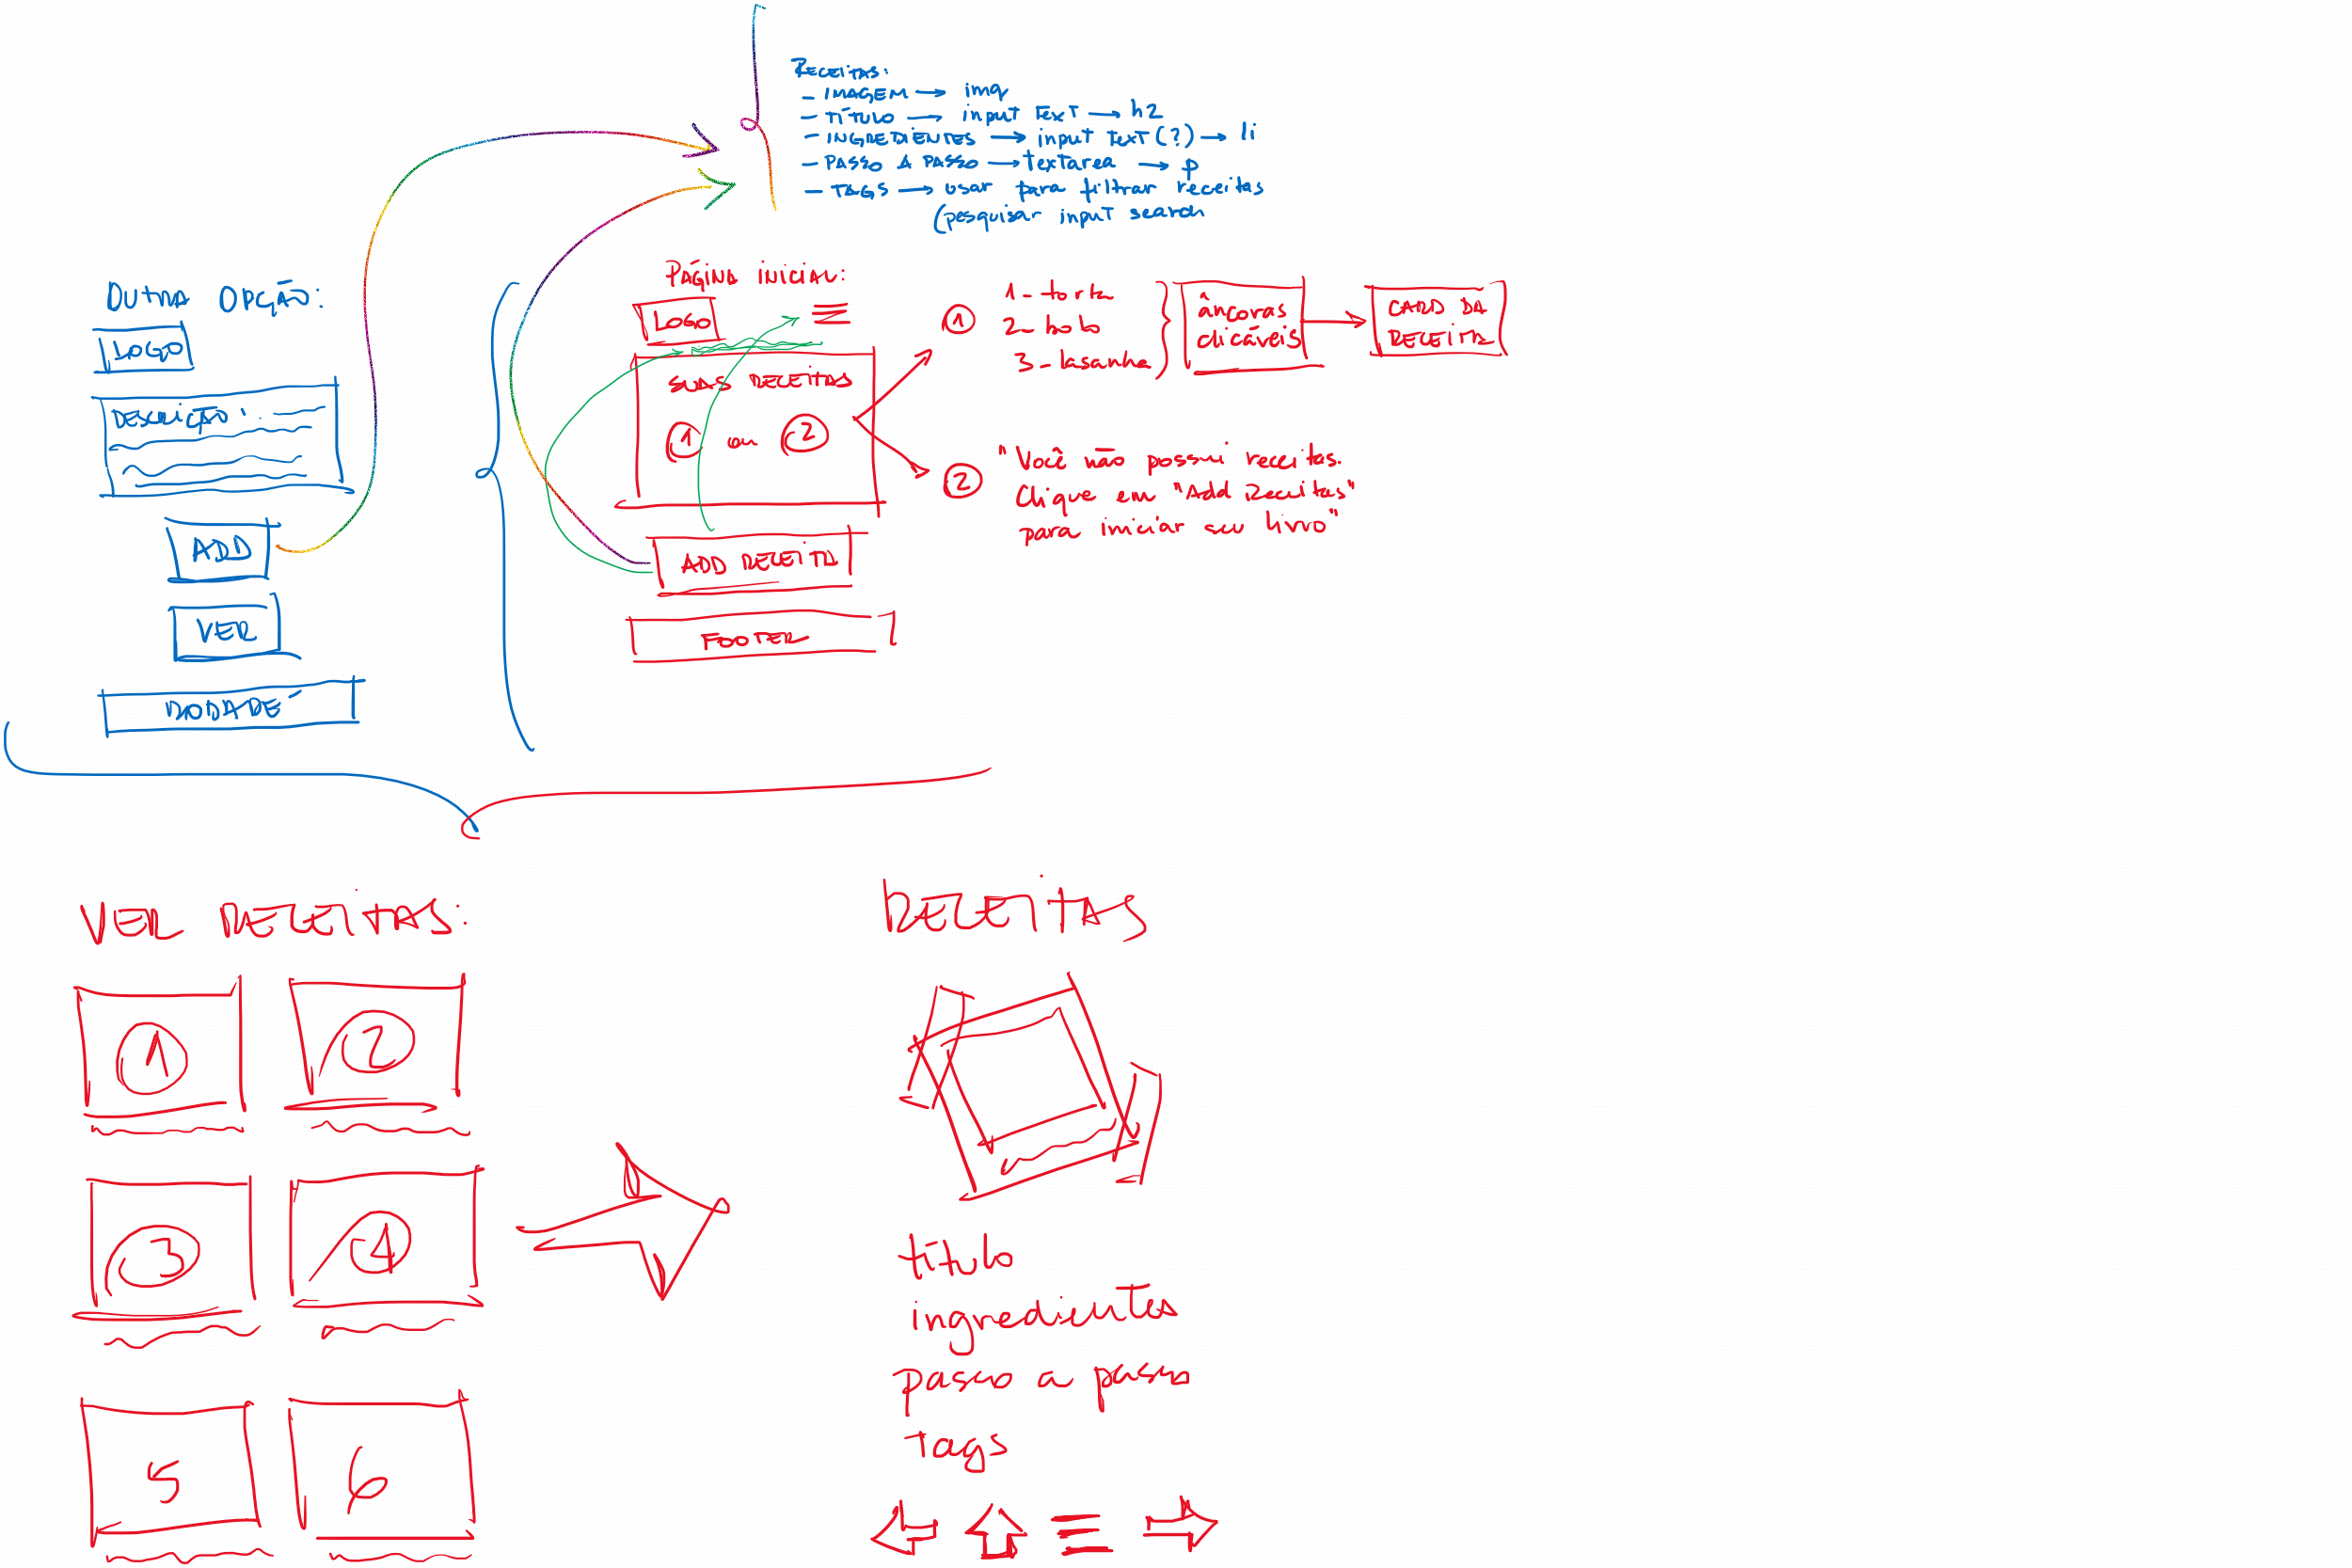 RECEITAS:
- IMAGEM → img
- TÍTULO → input TEXT → h2
- INGREDIENTES → input TEXT (?) → li
- PASSO A PASSO → textarea → p
- TAGS → usar para filtrar receitas
(pesquisar input search
OUTRA OPÇÃO:
LOGO
DESCRIÇÃO:
ADD
VER
RODAPÉ
PÁGINA INICIAL:
LOGO
SUAS RECEITAS
1 ou 2
ADD RECEITA
FOOTER
1
1- torta
2- bolo
3- lasanha
âncoras
clicáveis
CARD DA
RECEITA
2
"Você não possui receitas.
Clique em "Add Receitas"
para iniciar seu livro"
VER RECEITAS:
1
2
3
4
5
6
RECEITAS
título
ingredientes
passo a passo
tags